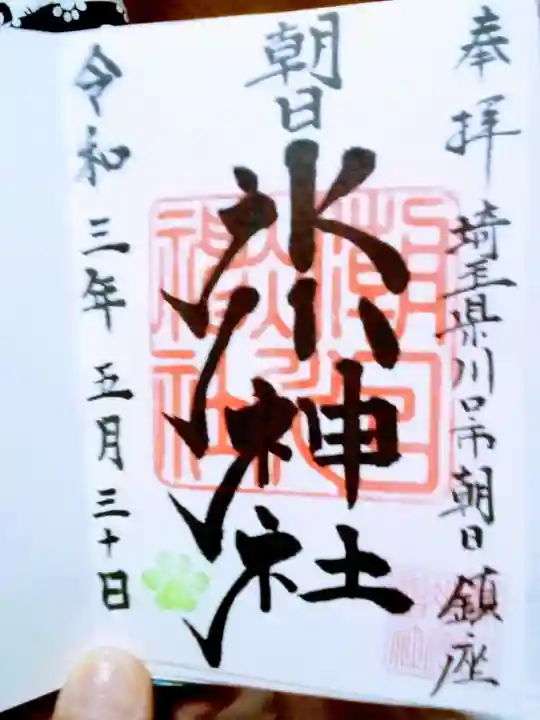 奉拝
埼玉県川口市朝日鎮座
朝日
氷川神社
令和三年五月三十日